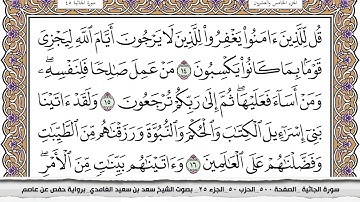 الجزء الخامس والعشرون سورة الجاثية ٤٥
قُل لِّلَّذِينَ ءَامَنُوا۟ يَغْفِرُوا۟ لِلَّذِينَ لَا يَرْجُونَ أَيَّامَ ٱللَّهِ لِيَجْزِىَ
قَوْمًۢا بِمَا كَانُوا۟ يَكْسِبُونَ ١٤ مَنْ عَمِلَ صَـٰلِحًا فَلِنَفْسِهِۦ ۖ
وَمَنْ أَسَآءَ فَعَلَيْهَا ۖ ثُمَّ إِلَىٰ رَبِّكُمْ تُرْجَعُونَ ١٥ وَلَقَدْ ءَاتَيْنَا
بَنِىٓ إِسْرَٰٓءِيلَ ٱلْكِتَـٰبَ وَٱلْحُكْمَ وَٱلنُّبُوَّةَ وَرَزَقْنَـٰهُم مِّنَ ٱلطَّيِّبَـٰتِ
وَفَضَّلْنَـٰهُمْ عَلَى ٱلْعَـٰلَمِينَ ١٦ وَءَاتَيْنَـٰهُم بَيِّنَـٰتٍ مِّنَ ٱلْأَمْرِ ۖ
سورة الجاثية _ الصفحة ٥٠٠ _ الحزب ٥٠ _ الجزء ٢٥ _ بصوت الشيخ سعد بن سعيد الغامدي _ برواية حفص عن عاصم